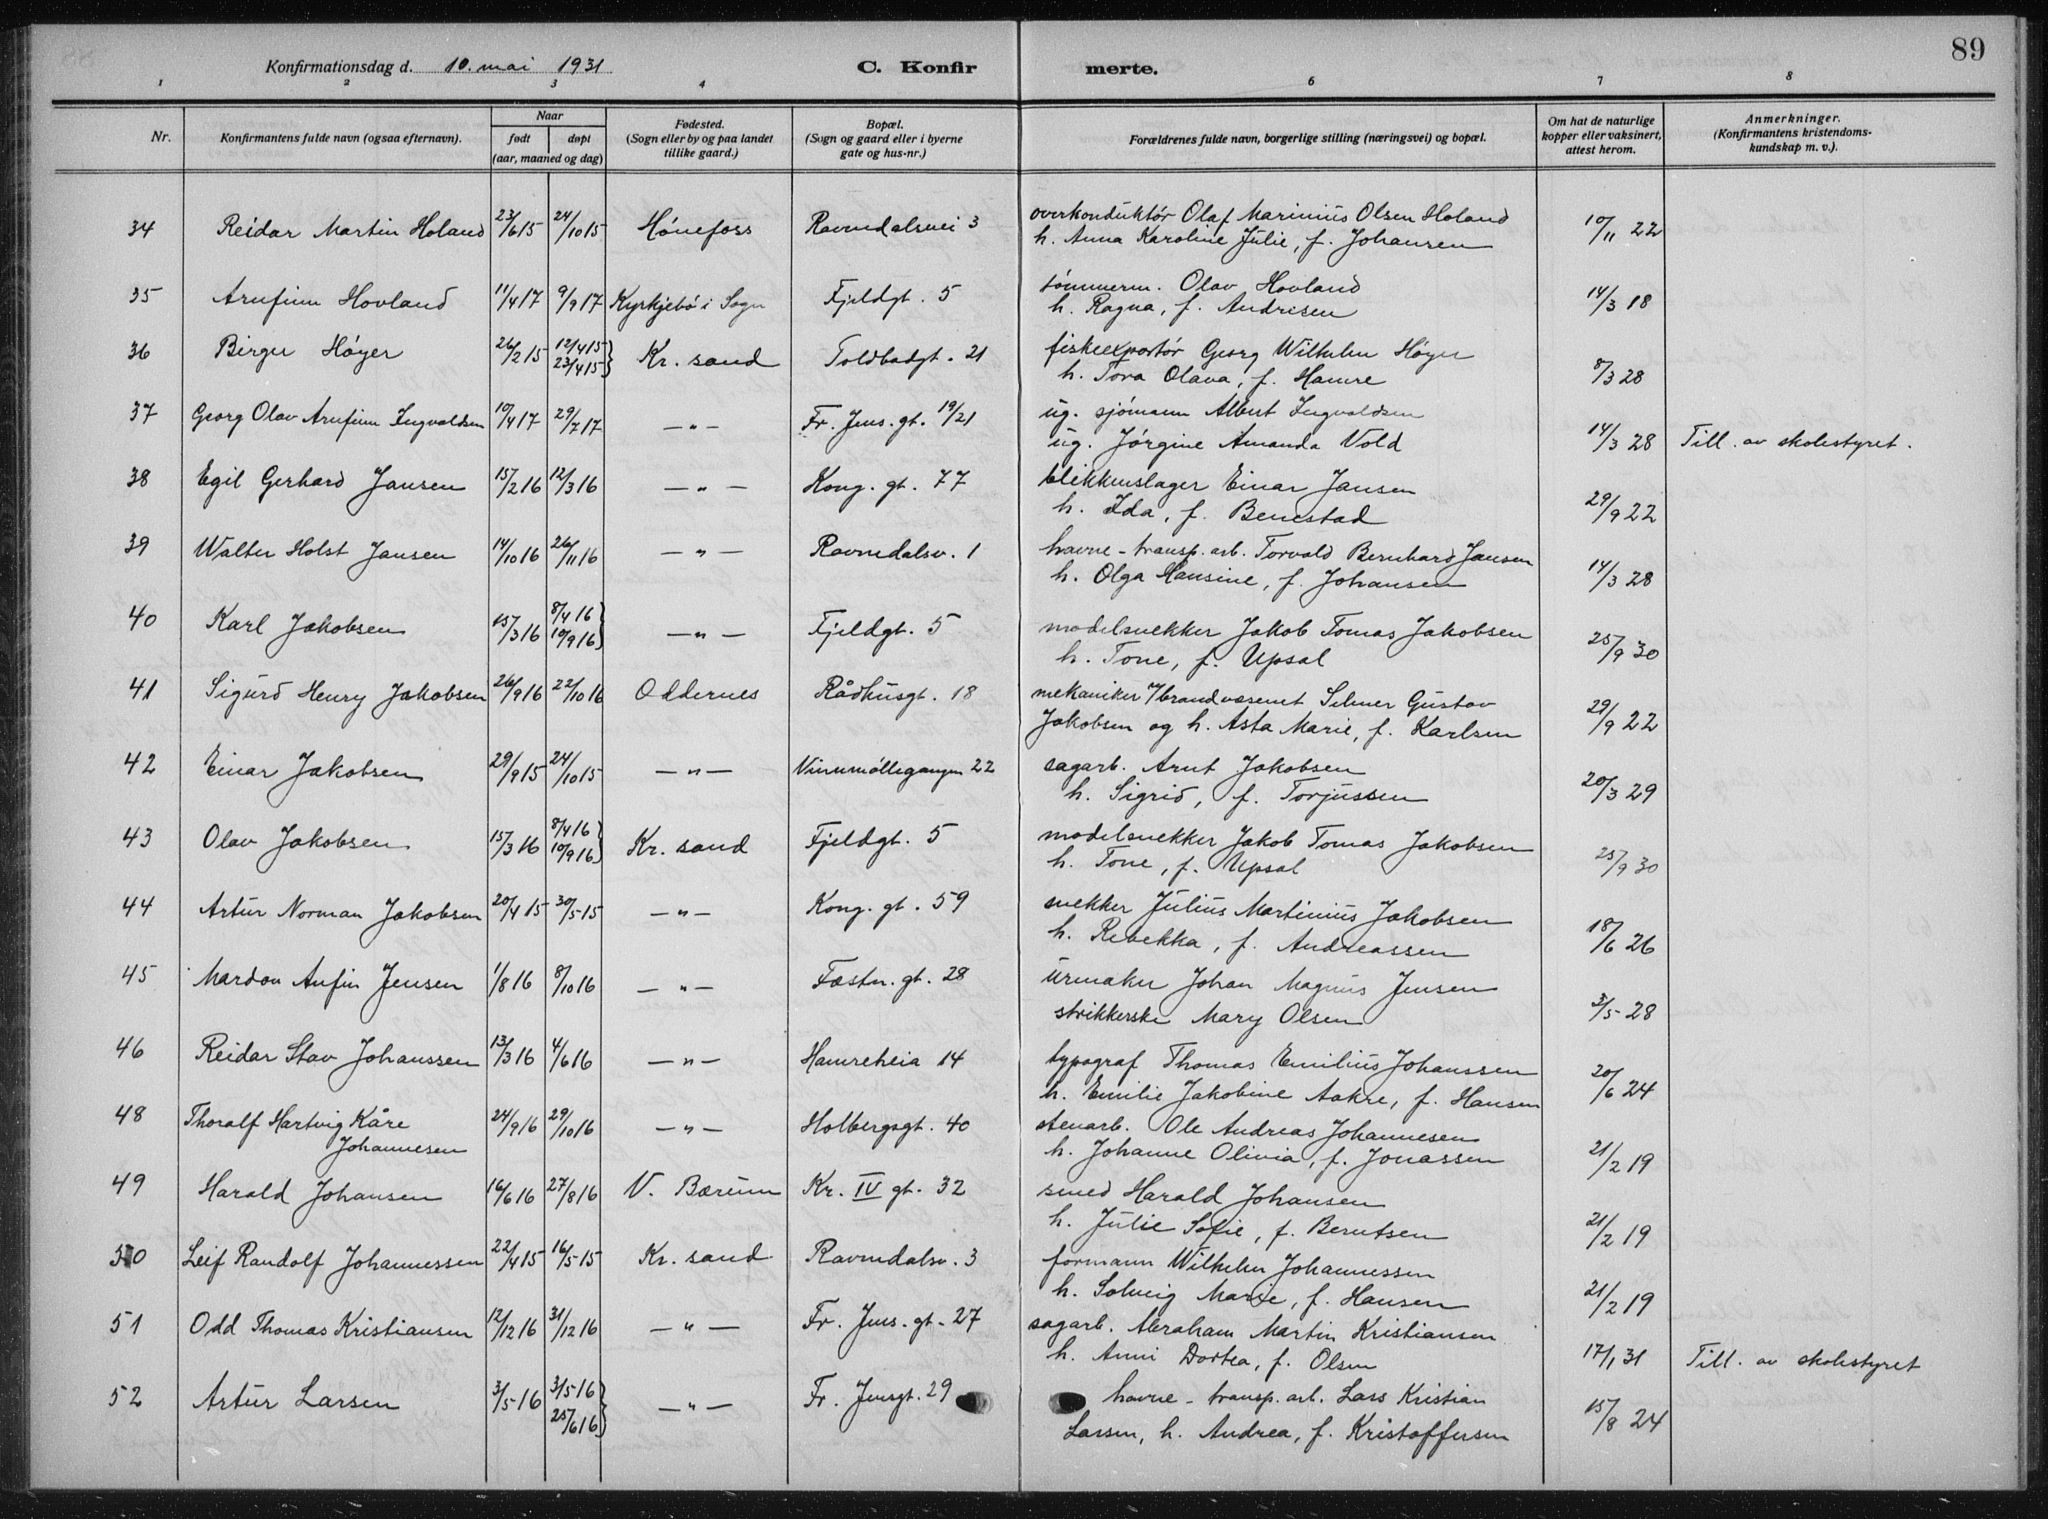 89
Konfirmationsdag d. 10. mai 1931 C. Konfir merte.
1 2 3 4 5 6 7 8
Nr. Konfirmantens fulde navn (ogsaa efternavn). Naar født døpt (aar, maaned og dag) Fødested. (Sogn eller by og paa landet tillike gaard.) Bopæl. (Sogn og gaard eller i byerne gate og hus-nr.) Forældrenes fulde navn, borgerlige stilling (næringsvei) og bopæl. Om hat de naturlige kopper eller vaksinert, attest herom. Anmerkninger. (Konfirmantens kristendoms-kundskap m. v.).
34 Reidar Martin Holand 23/6 15 24/10 15 Hønefoss Ravnedalsvei 3 overkonduktør Olaf Marinius Olsen Holand
h. Anna Karoline Julie, f. Johansen 10/11 22
35 Arnfinn Hovland 11/4 17 9/9 17 Kyrkjebø i Sogn Fjeldgt. 5 tømmerm. Olav Hovland
h. Ragna, f. Andrisen 14/3 18
36 Birger Høyer 26/2 15 12/4 15 23/4 15 Kr. sand Toldbodgt. 21 fiskeexportør Georg Wilhelm Høyer
h. Tora Olava, f. Hamre 8/3 28
37 Georg Olav Arnfinn Ingvaldsen 10/4 17 29/7 17 — " — Fr. Jens. gt. 19/21 ug. sjømann Albert Ingvaldsen
ug. Jørgine Amanda Vold 14/3 28 Till. av skolestyret.
38 Egil Gerhard Jansen 15/2 16 12/3 16 — " — Kong. gt. 77 blikkenslager Einar Jansen
h. Ida, f. Benestad 29/9 22
39 Walter Holst Jansen 14/10 16 26/11 16 — " — Ravnedalsv. 1 havne-transp. arb. Torvald Bernhard Jansen
h. Olga Hansine, f. Johansen 14/3 28
40 Karl Jakobsen 15/3 16 8/4 16 10/9 16 — " — Fjeldgt. 5 modelsnekker Jakob Tomas Jakobsen
h. Tone, f. Upsal 25/9 30
41 Sigurd Henry Jakobsen 26/9 16 22/10 16 Oddernes Rådhusgt. 18 mekaniker v/brandvæsenet Selmer Gustav
Jakobsen og h. Asta Marie, f. Karlsen 29/9 22
42 Einar Jakobsen 29/9 15 24/10 15 — " — Vinnmøllegangen 22 sagarb. Arnt Jakobsen
h. Sigrid, f. Torjussen 20/3 29
43 Olav Jakobsen 15/3 16 8/4 16 10/9 16 Kr. sand Fjeldgt. 5 modelsnekker Jakob Tomas Jakobsen
h. Tone, f. Upsal 25/9 30
44 Artur Norman Jakobsen 20/4 15 30/5 15 — " — Kong. gt. 59 snekker Julius Martinius Jakobsen
h. Rebekka, f. Andreassen 18/6 26
45 Mardon Anfin Jensen 1/8 16 8/10 16 — " — Fæstn. gt. 28 urmaker Johan Magnus Jensen
strikkerske Mary Olsen 3/5 28
46 Reidar Stav Johanssen 13/3 16 4/6 16 — " — Hamreheia 14 typograf Thomas Emilius Johanssen
h. Emilie Jakobine Aakre, f. Hansen 20/6 24
48 Thoralf Hartvig Kåre Johannesen 24/9 16 29/10 16 — " — Holbergsgt. 40 stenarb. Ole Andreas Johannesen
h. Johanne Olivia, f. Jonassen 21/2 19
49 Harald Johansen 16/6 16 27/8 16 V. Bærum Kr. IV gt. 32 smed Harald Johansen
h. Julie Sofie, f. Berntsen 21/2 19
50 Leif Randolf Johannessen 22/4 15 16/5 15 Kr. sand Ravnedalsv. 3 formann Wilhelm Johannessen
h. Solveig Marie, f. Hansen 21/2 19
51 Odd Thomas Kristiansen 12/12 16 31/12 16 — " — Fr. Jens. gt. 27 sagarb. Abraham Martin Kristiansen
h. Anni Dortea, f. Olsen 17/1 31 Till. av skolestyret
52 Artur Larsen 3/5 16 3/5 16 25/6 16 — " — Fr. Jensgt. 29 havne-transp. arb. Lars Kristian
Larsen, h. Andrea, f. Kristoffersen 15/8 24